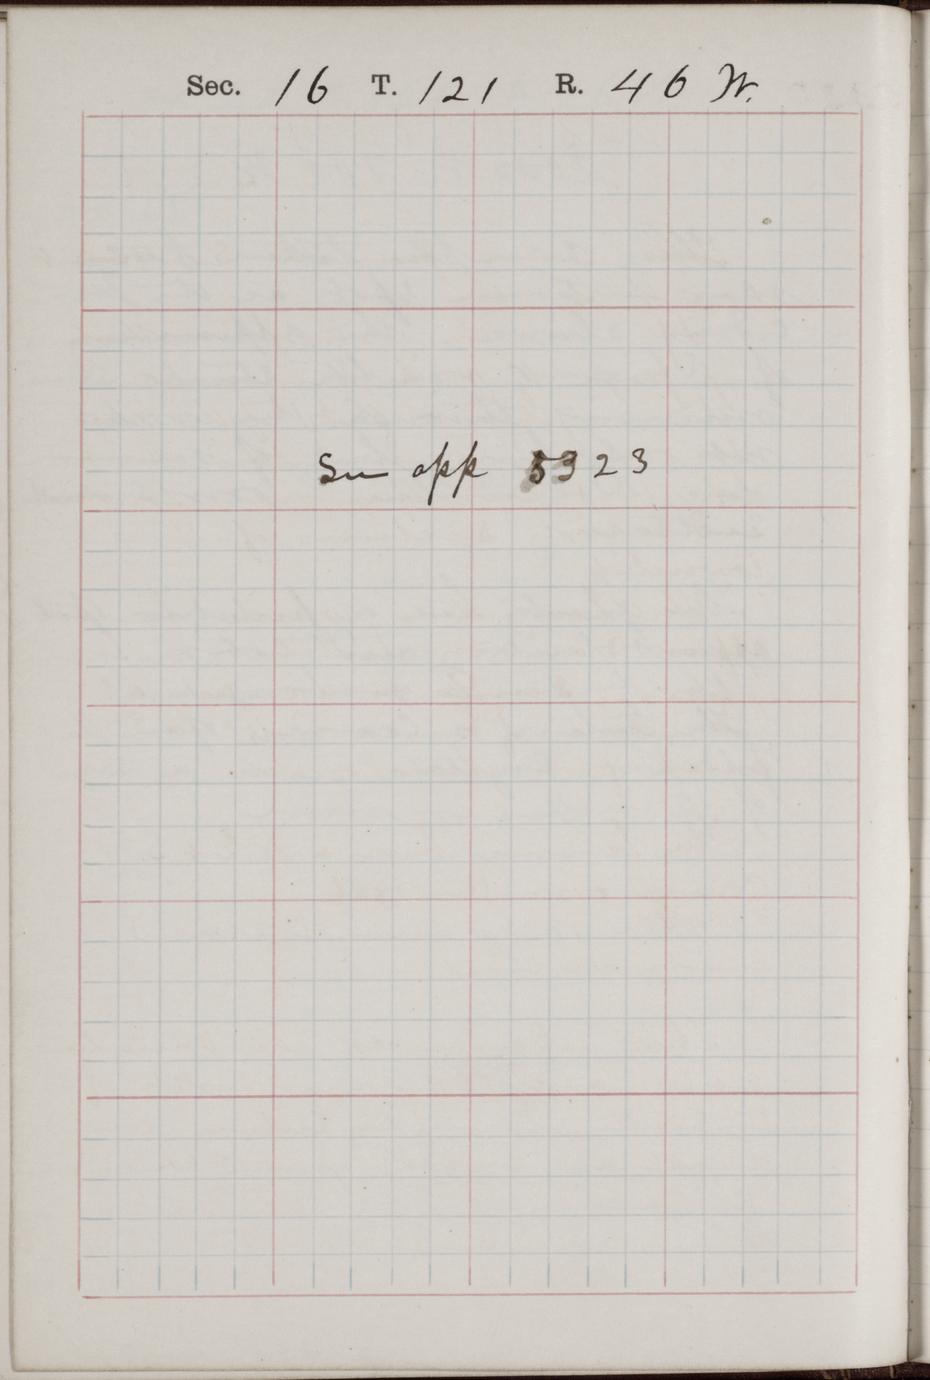 Sec. 16 T. 121 R. 46 W.
See opp 5323